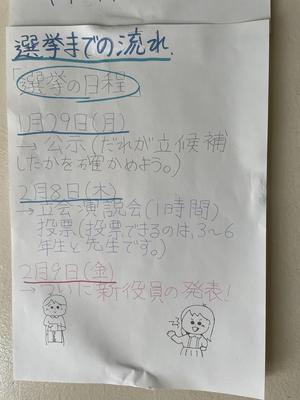 選挙までの流れ.
「選挙の日程」
1月29日(月)
→公示(だれが立候補
したかを確かめよう。)
2月8日(木)
→立会演説会(1時間)
投票(投票できるのは、3~6
年生と先生です。)
2月9日(金)
→ついに新役員の発表!